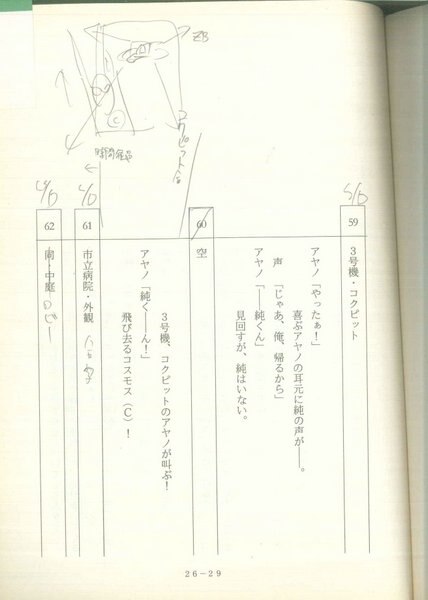 59
3号機・コクピット
アヤノ「やったぁ!」
喜ぶアヤノの耳元に純の声が──。
声 「じゃあ、俺、帰るから」
アヤノ「──純くん」
見回すが、純はいない。
60
空
3号機、コクピットのアヤノが叫ぶ!
アヤノ「純く──ん!」
飛び去るコスモス(C)!
61
市立病院・外観
62
同・中庭 ロビー
コクピット
時間経過
C
26-29